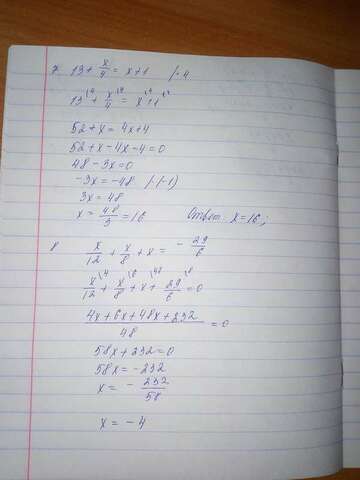 7 13 + x/4 = x + 1 | · 4
13\4 + x/4 = x\4 + 1\4
52 + x = 4x + 4
52 + x - 4x - 4 = 0
48 - 3x = 0
-3x = -48 | · (-1)
3x = 48
x = 48/3 = 16 Ответ x = 16;
8 x/12 + x/8 + x = - 29/6
x/12\4 + x/8\6 + x\48 + 29/6\8 = 0
4x + 6x + 48x + 232/48 = 0
58x + 232 = 0
58x = -232
x = - 232/58
x = -4